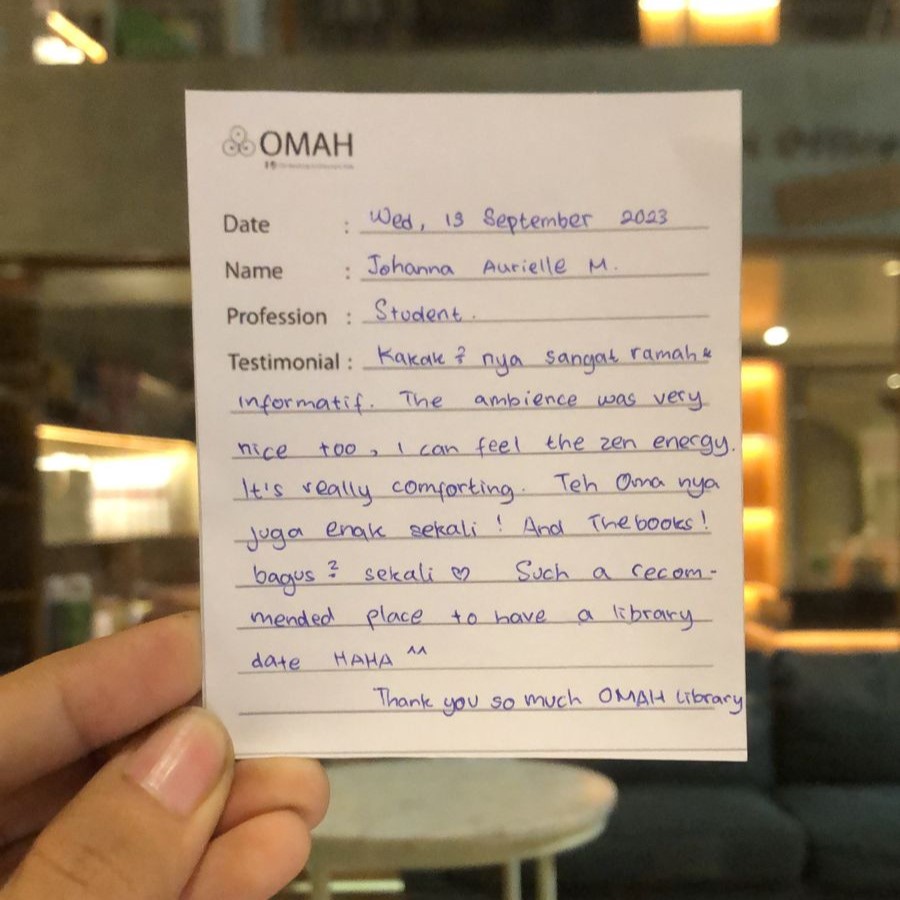 OMAH
Date : Wed, 13 September 2023
Name : Johanna Aurielle M.
Profession : Student.
Testimonial : Kakak² nya sangat ramah &
informatif. The ambience was very
nice too, I can feel the zen energy.
It's really comforting. Teh Oma nya
juga enak sekali! And The books!
bagus² sekali ♡ Such a recom-
mended place to have a library
date HAHA ^^
Thank you so much OMAH Library